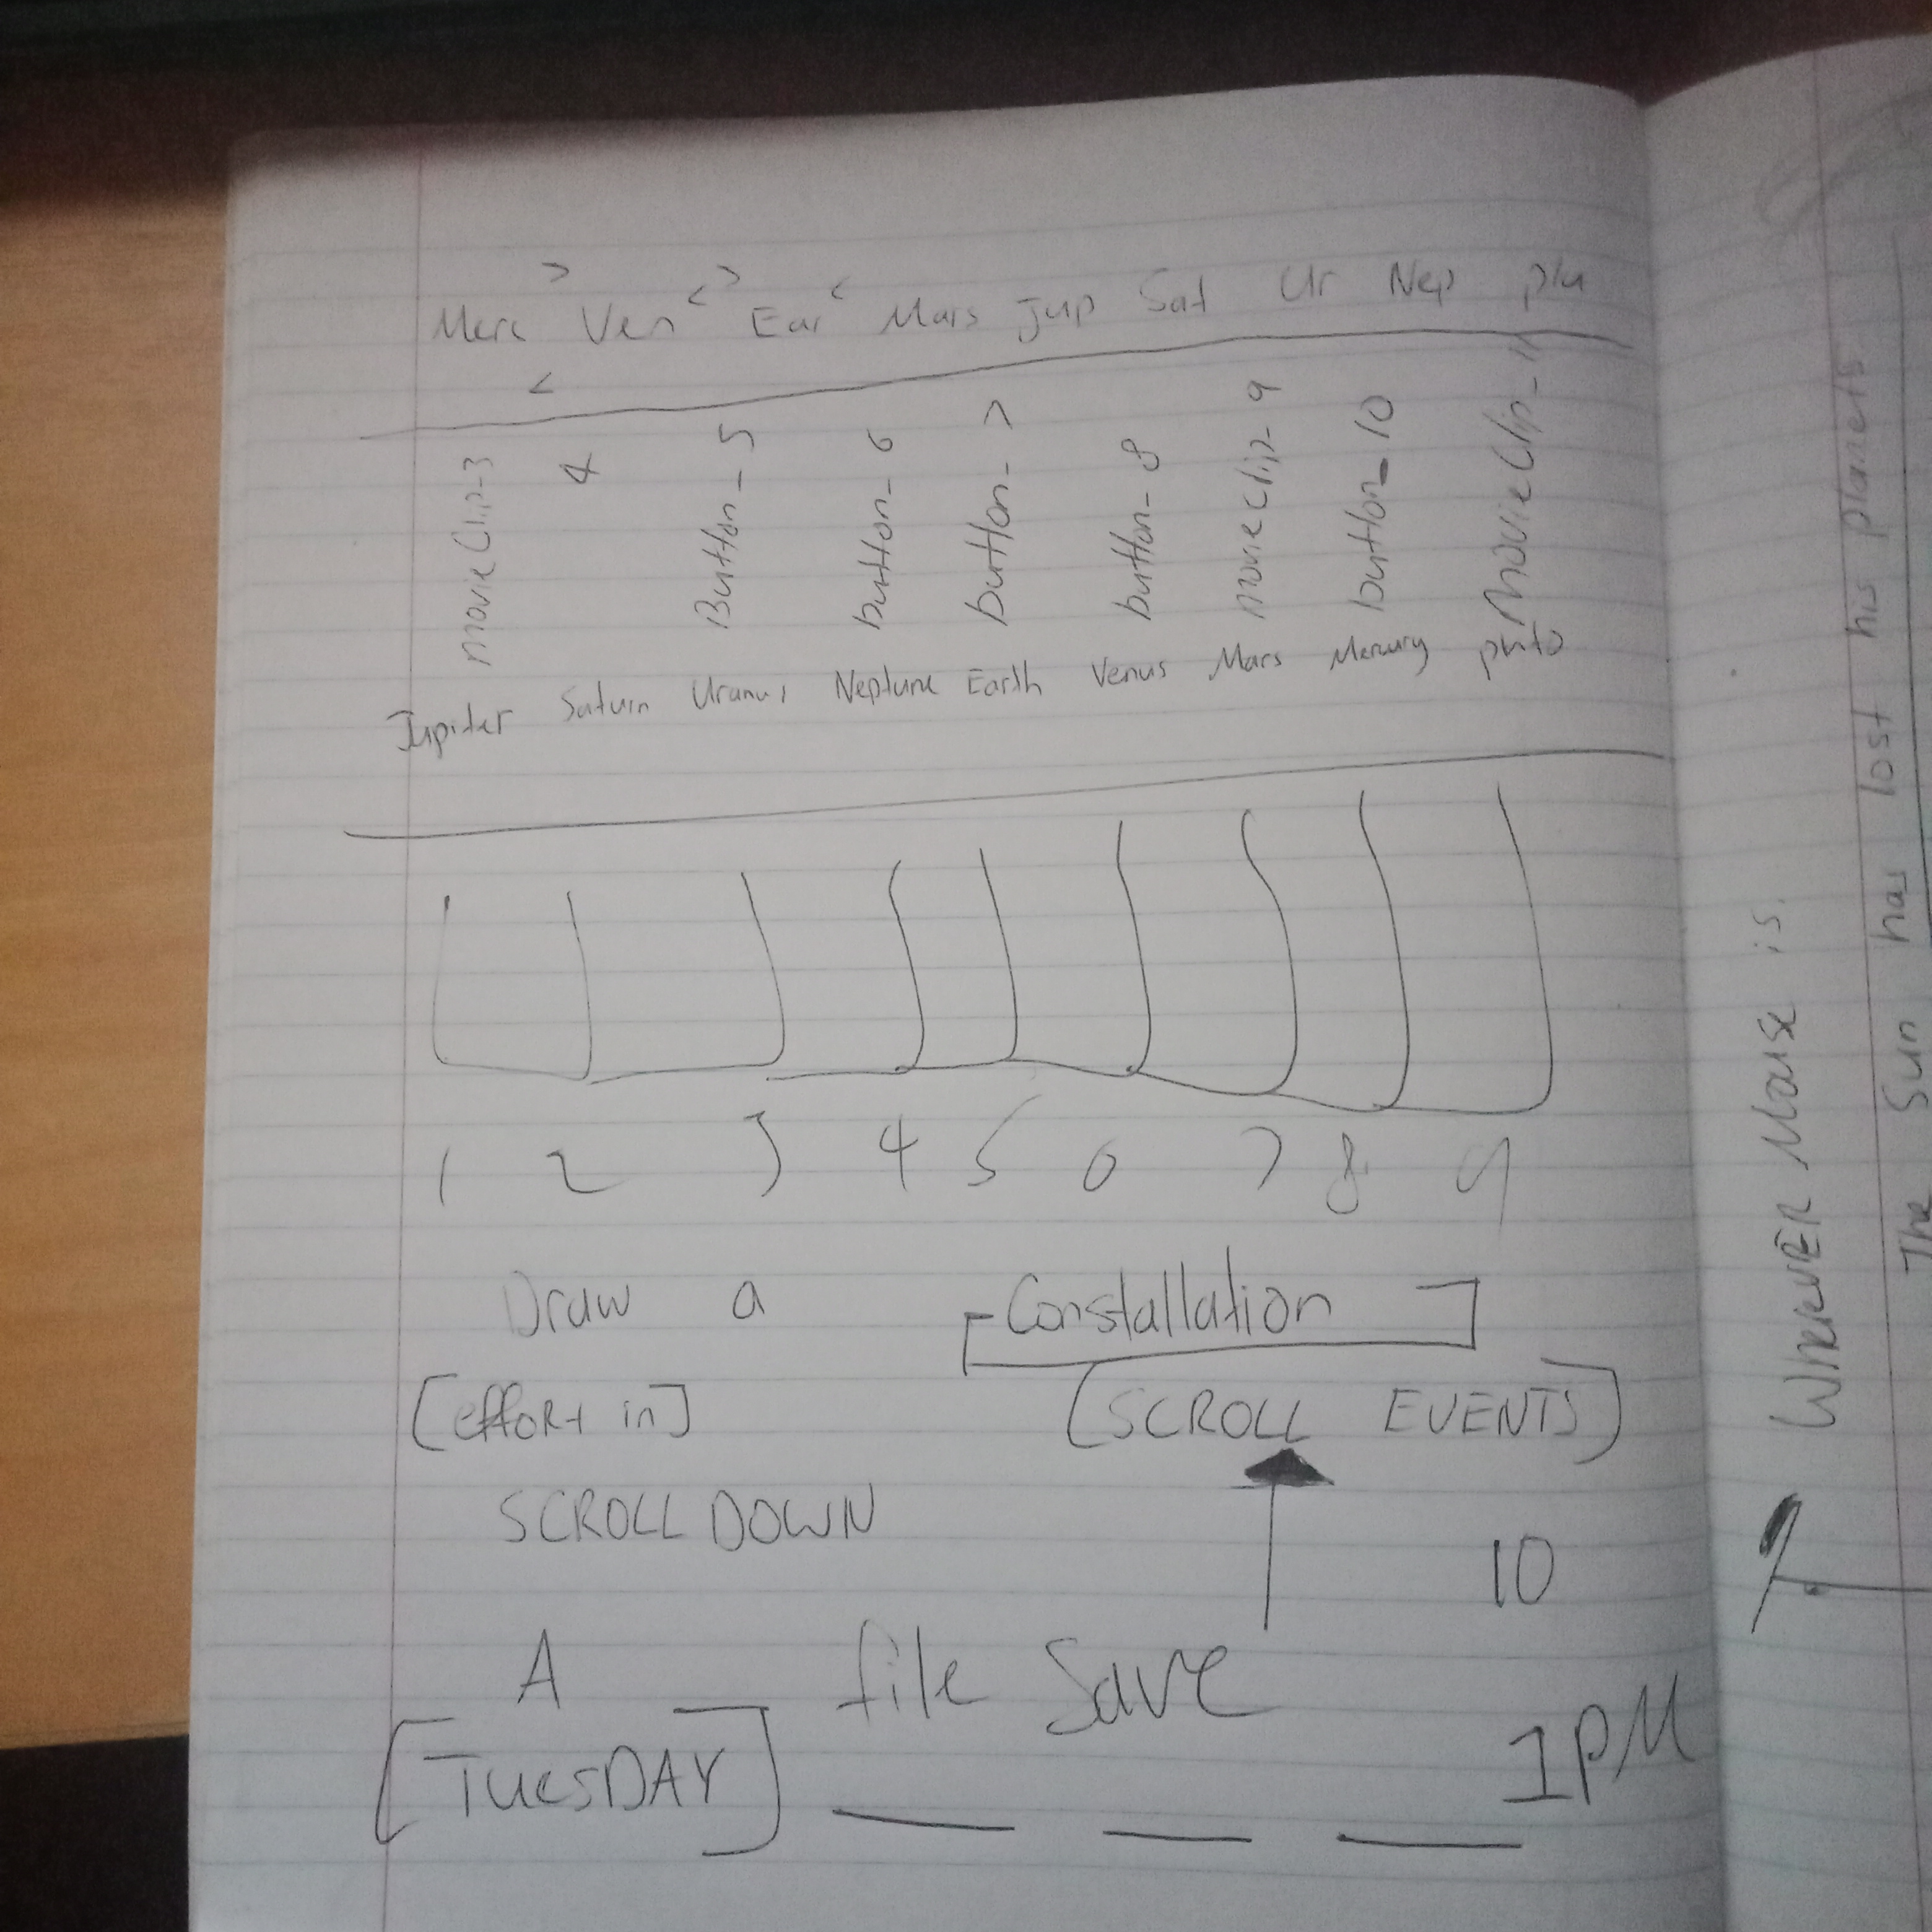 > < > <
Merc Ven Ear Mars Jup Sat Ur Nep plu
<
movieClip-3 4 Button_5 button_6 button_7 button_8 movieclip-9 button_10 MovieClip_11
Jupiter Saturn Uranus Neptune Earth Venus Mars Mercury pluto
1 2 3 4 5 6 7 8 9
Draw a Constallation
[effoRt in] (SCROLL EVENTS)
SCROLL DOWN
10
A file Save
[TuesDAY] 1PM
WhereVER Mouse is.
The Sun has lost his planets.